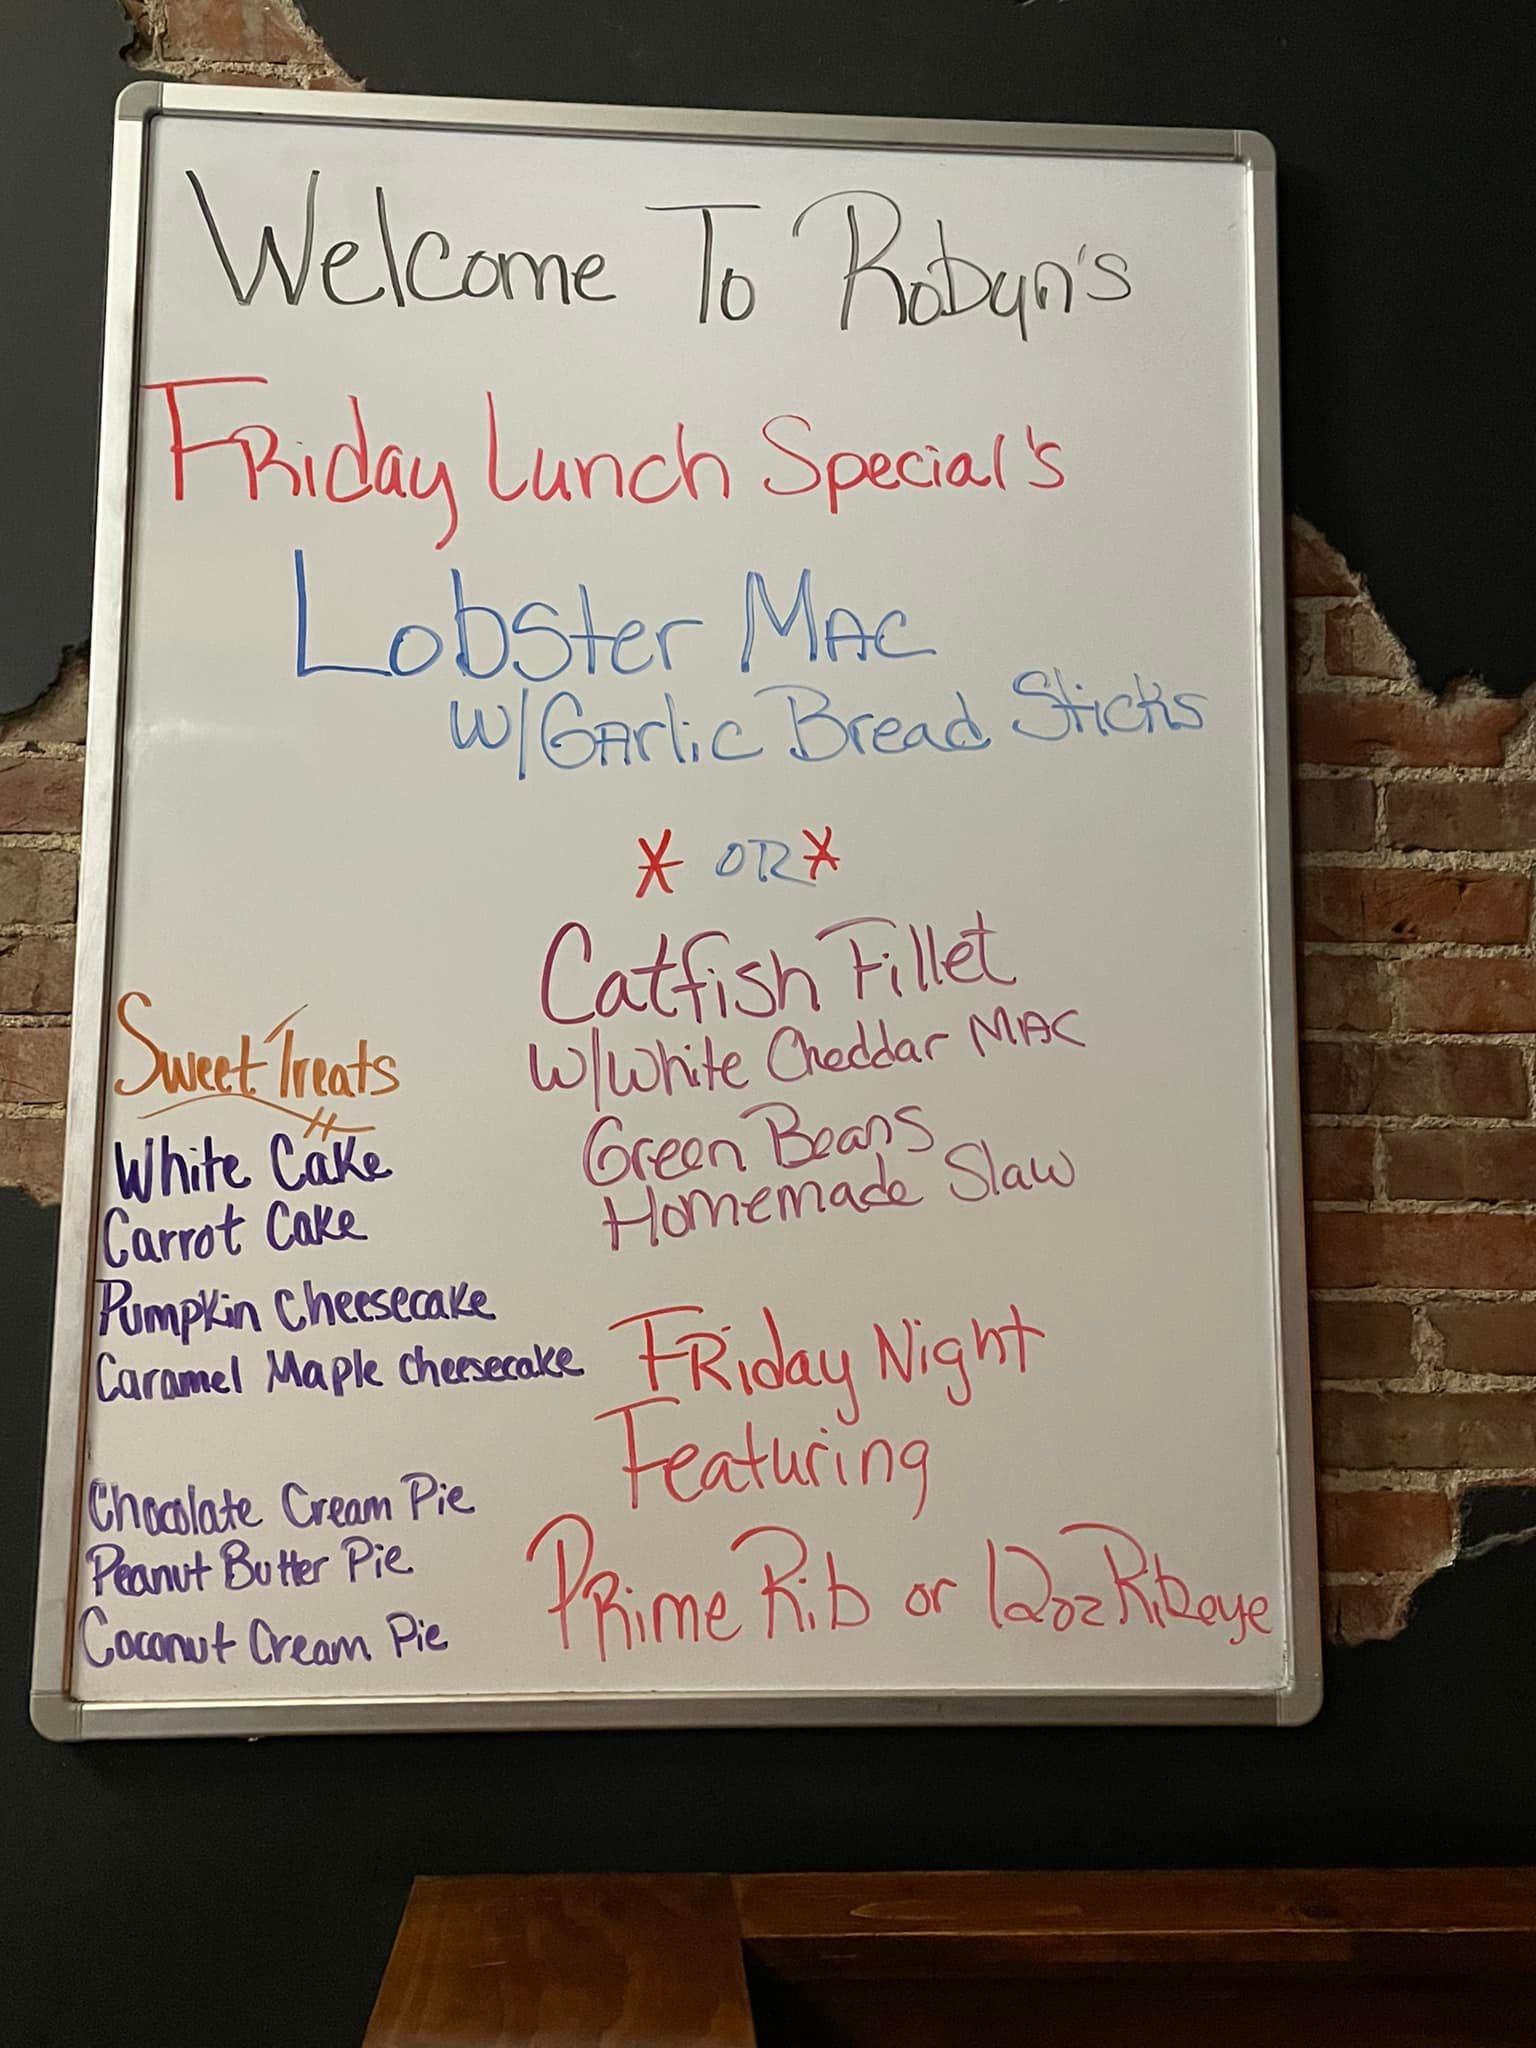 Welcome To Robyn's
Friday Lunch Special's
Lobster Mac
w/Garlic Bread Sticks
* OR *
Catfish Fillet
w/White Cheddar Mac
Green Beans
Homemade Slaw
Sweet Treats
White Cake
Carrot Cake
Pumpkin Cheesecake
Caramel Maple cheesecake
Chocolate Cream Pie
Peanut Butter Pie
Coconut Cream Pie
Friday Night
Featuring
Prime Rib or 12oz Ribeye